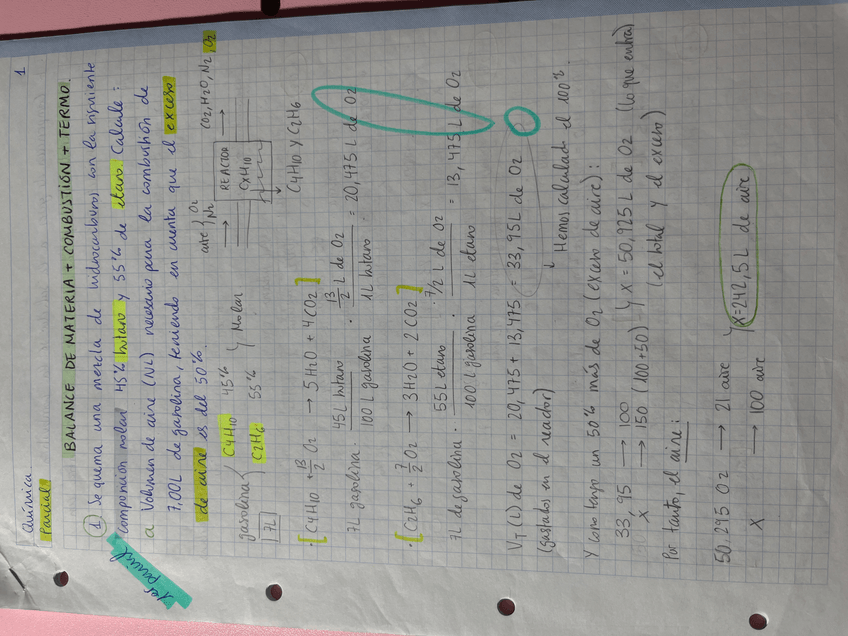 Química
Parcial.
1
BALANCE DE MATERIA + COMBUSTIÓN + TERMO.
1er parcial
① Se quema una mezcla de hidrocarburos con la siguiente
composición molar 45% butano y 55% de etano. Calcule:
a Volumen de aire (NL) necesario para la combustión de
7,00L de gasolina, teniendo en cuenta que el exceso
de aire es del 50%.
gasolina { C4H10 45% } Molar
7L C2H6 55%
aire { O2 N2
REACTOR
CxH10
CO2, H2O, N2, O2
C4H10 y C2H6
· [C4H10 + 13/2 O2 → 5H2O + 4CO2]
7L gasolina · 45L butano / 100 L gasolina · 13/2 L de O2 / 1L butano = 20,475 L de O2
· [C2H6 + 7/2 O2 → 3H2O + 2CO2]
7L de gasolina · 55L etano / 100 L gasolina · 7/2 L de O2 / 1L etano = 13,475 L de O2
VT (L) de O2 = 20,475 + 13,475 = 33,95L de O2
(gastados en el reactor)
↓ Hemos calculado el 100%.
Y como tengo un 50% más de O2 (exceso de aire):
33,95 → 100
x → 150 (100+50) } x = 50,925L de O2 (lo que entra)
(el total y el exceso)
Por tanto, el aire:
50,295 O2 → 21 aire
x → 100 aire } x=242,5L de aire